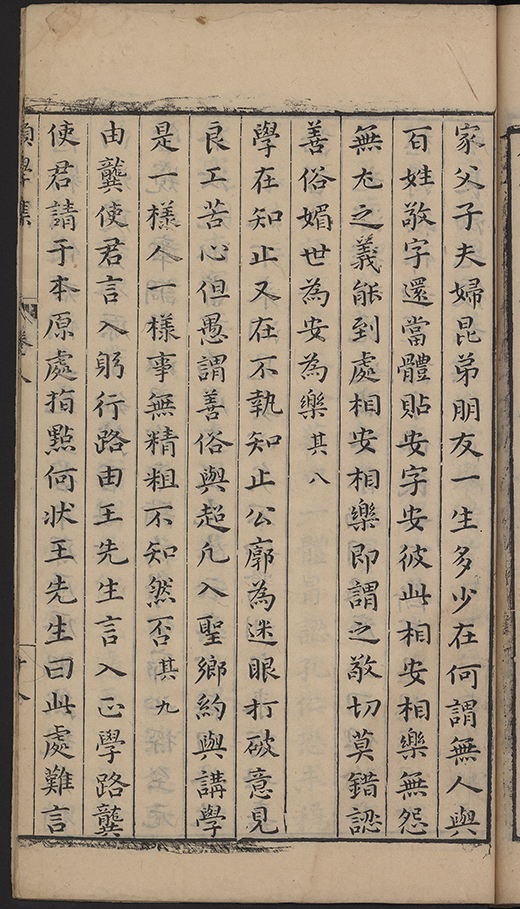 家父子夫婦昆弟朋友一生多少在何謂無人與
百姓敬字還當體貼安字安彼此相安相樂無怨
無尤之義能到處相安相樂即謂之敬切莫錯認
善俗媚世為安為樂其八
學在知止又在不執知止公廓為迷眼打破意見
良工苦心但愚謂善俗與超凡入聖鄉約與講學
是一樣人一樣事無精粗不知然否其九
由龔使君言入躬行路由王先生言入正學路龔
使君請于本原處指點何狀王先生曰此處難言
學集 卷八 十八